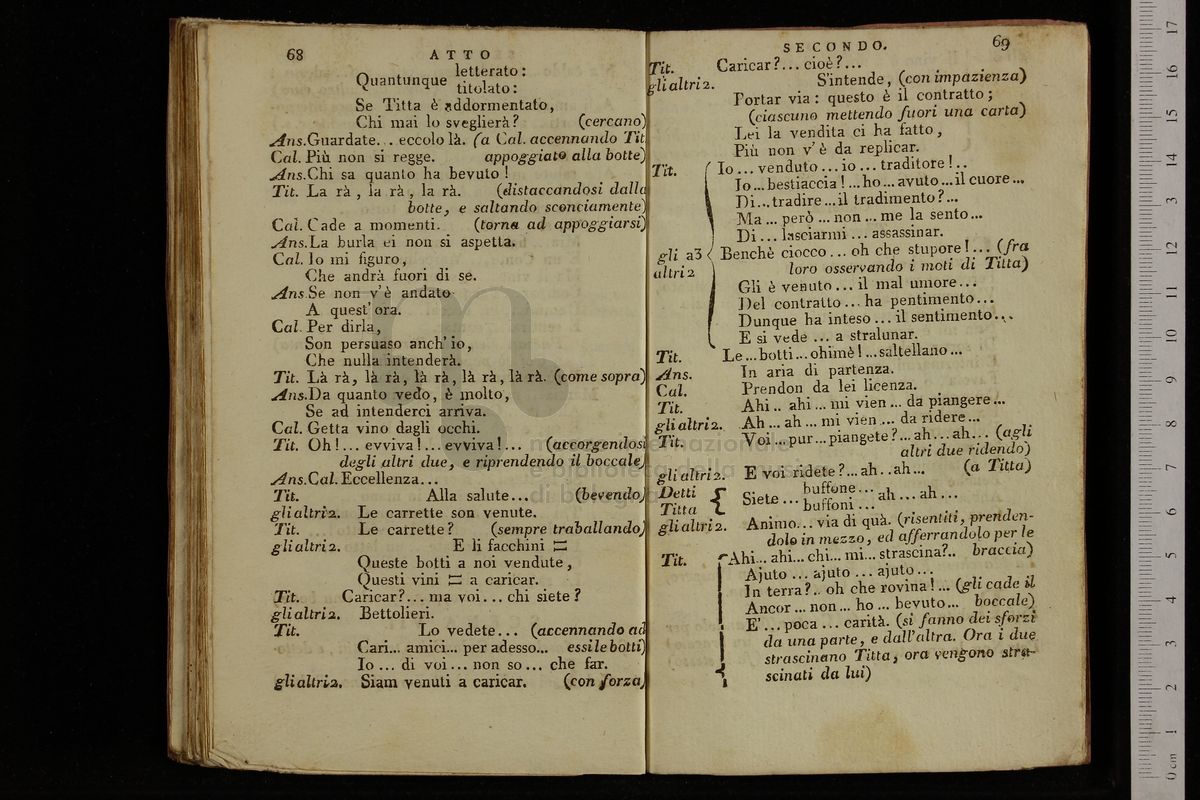 68 ATTO
letterato:
Quantunque titolato:
Se Titta è addormentato,
Chi mai lo sveglierà? (cercano)
Ans.Guardate. . eccolo là. (a Cal. accennando Tit.
Cal. Più non si regge. appoggiato alla botte)
Ans.Chi sa quanto ha bevuto!
Tit. La rà, la rà, la rà. (distaccandosi dalla
botte, e saltando sconciamente)
Cal. Cade a momenti. (torna ad appoggiarsi)
Ans.La burla ei non si aspetta.
Cal. Io mi figuro,
Che andrà fuori di se.
Ans.Se non v'è andato
A quest' ora.
Cal. Per dirla,
Son persuaso anch' io,
Che nulla intenderà.
Tit. Là rà, là rà, là rà, là rà, là rà. (come sopra)
Ans.Da quanto vedo, è molto,
Se ad intenderci arriva.
Cal. Getta vino dagli occhi.
Tit. Oh!... evviva!... evviva!... (accorgendosi
degli altri due, e riprendendo il boccale)
Ans.Cal. Eccellenza...
Tit. Alla salute... (bevendo)
gli altri 2. Le carrette son venute.
Tit. Le carrette? (sempre traballando)
gli altri 2. E li facchini
Queste botti a noi vendute,
Questi vini a caricar.
Tit. Caricar?... ma voi... chi siete?
gli altri 2. Bettolieri.
Tit. Lo vedete... (accennando ad
Cari... amici... per adesso... essi le botti)
Io ... di voi... non so... che far.
gli altri 2. Siam venuti a caricar. (con forza)
SECONDO. 69
Tit. Caricar?... cioè?...
gli altri 2. S'intende, (con impazienza)
Portar via: questo è il contratto;
(ciascuno mettendo fuori una carta)
Lei la vendita ci ha fatto,
Più non v' è da replicar.
Tit. Io ... venduto ... io ... traditore!..
Io ... bestiaccia! ... ho ... avuto ... il cuore ...
Di... tradire ... il tradimento?...
Ma ... però ... non ... me la sento...
Di ... lasciarmi ... assassinar.
gli a3 Benchè ciocco ... oh che stupore!... (fra
altri 2 loro osservando i moti di Titta)
Gli è venuto ... il mal umore...
Del contratto ... ha pentimento...
Dunque ha inteso ... il sentimento...
E si vede ... a stralunar.
Tit. Le ... botti ... ohimè! ... saltellano ...
Ans. In aria di partenza.
Cal. Prendon da lei licenza.
Tit. Ahi .. ahi ... mi vien ... da piangere...
gli altri 2. Ah ... ah ... mi vien ... da ridere ...
Tit. Voi ... pur ... piangete?... ah... ah... (agli
altri due ridendo)
gli altri 2. E voi ridete?... ah. .ah... (a Titta)
Detti buffone...
Siete ... ah ... ah ...
Titta buffoni ...
gli altri 2. Animo... via di quà. (risentiti, prenden-
dolo in mezzo, ed afferrandolo per le
Tit. Ahi... ahi... chi... mi... strascina?.. braccia)
Ajuto ... ajuto ... ajuto ...
In terra?.. oh che rovina!... (gli cade il
Ancor ... non ... ho ... bevuto ... boccale)
E'... poca ... carità. (si fanno dei sforzi
da una parte, e dall'altra. Ora i due
strascinano Titta, ora vengono stra-
scinati da lui)